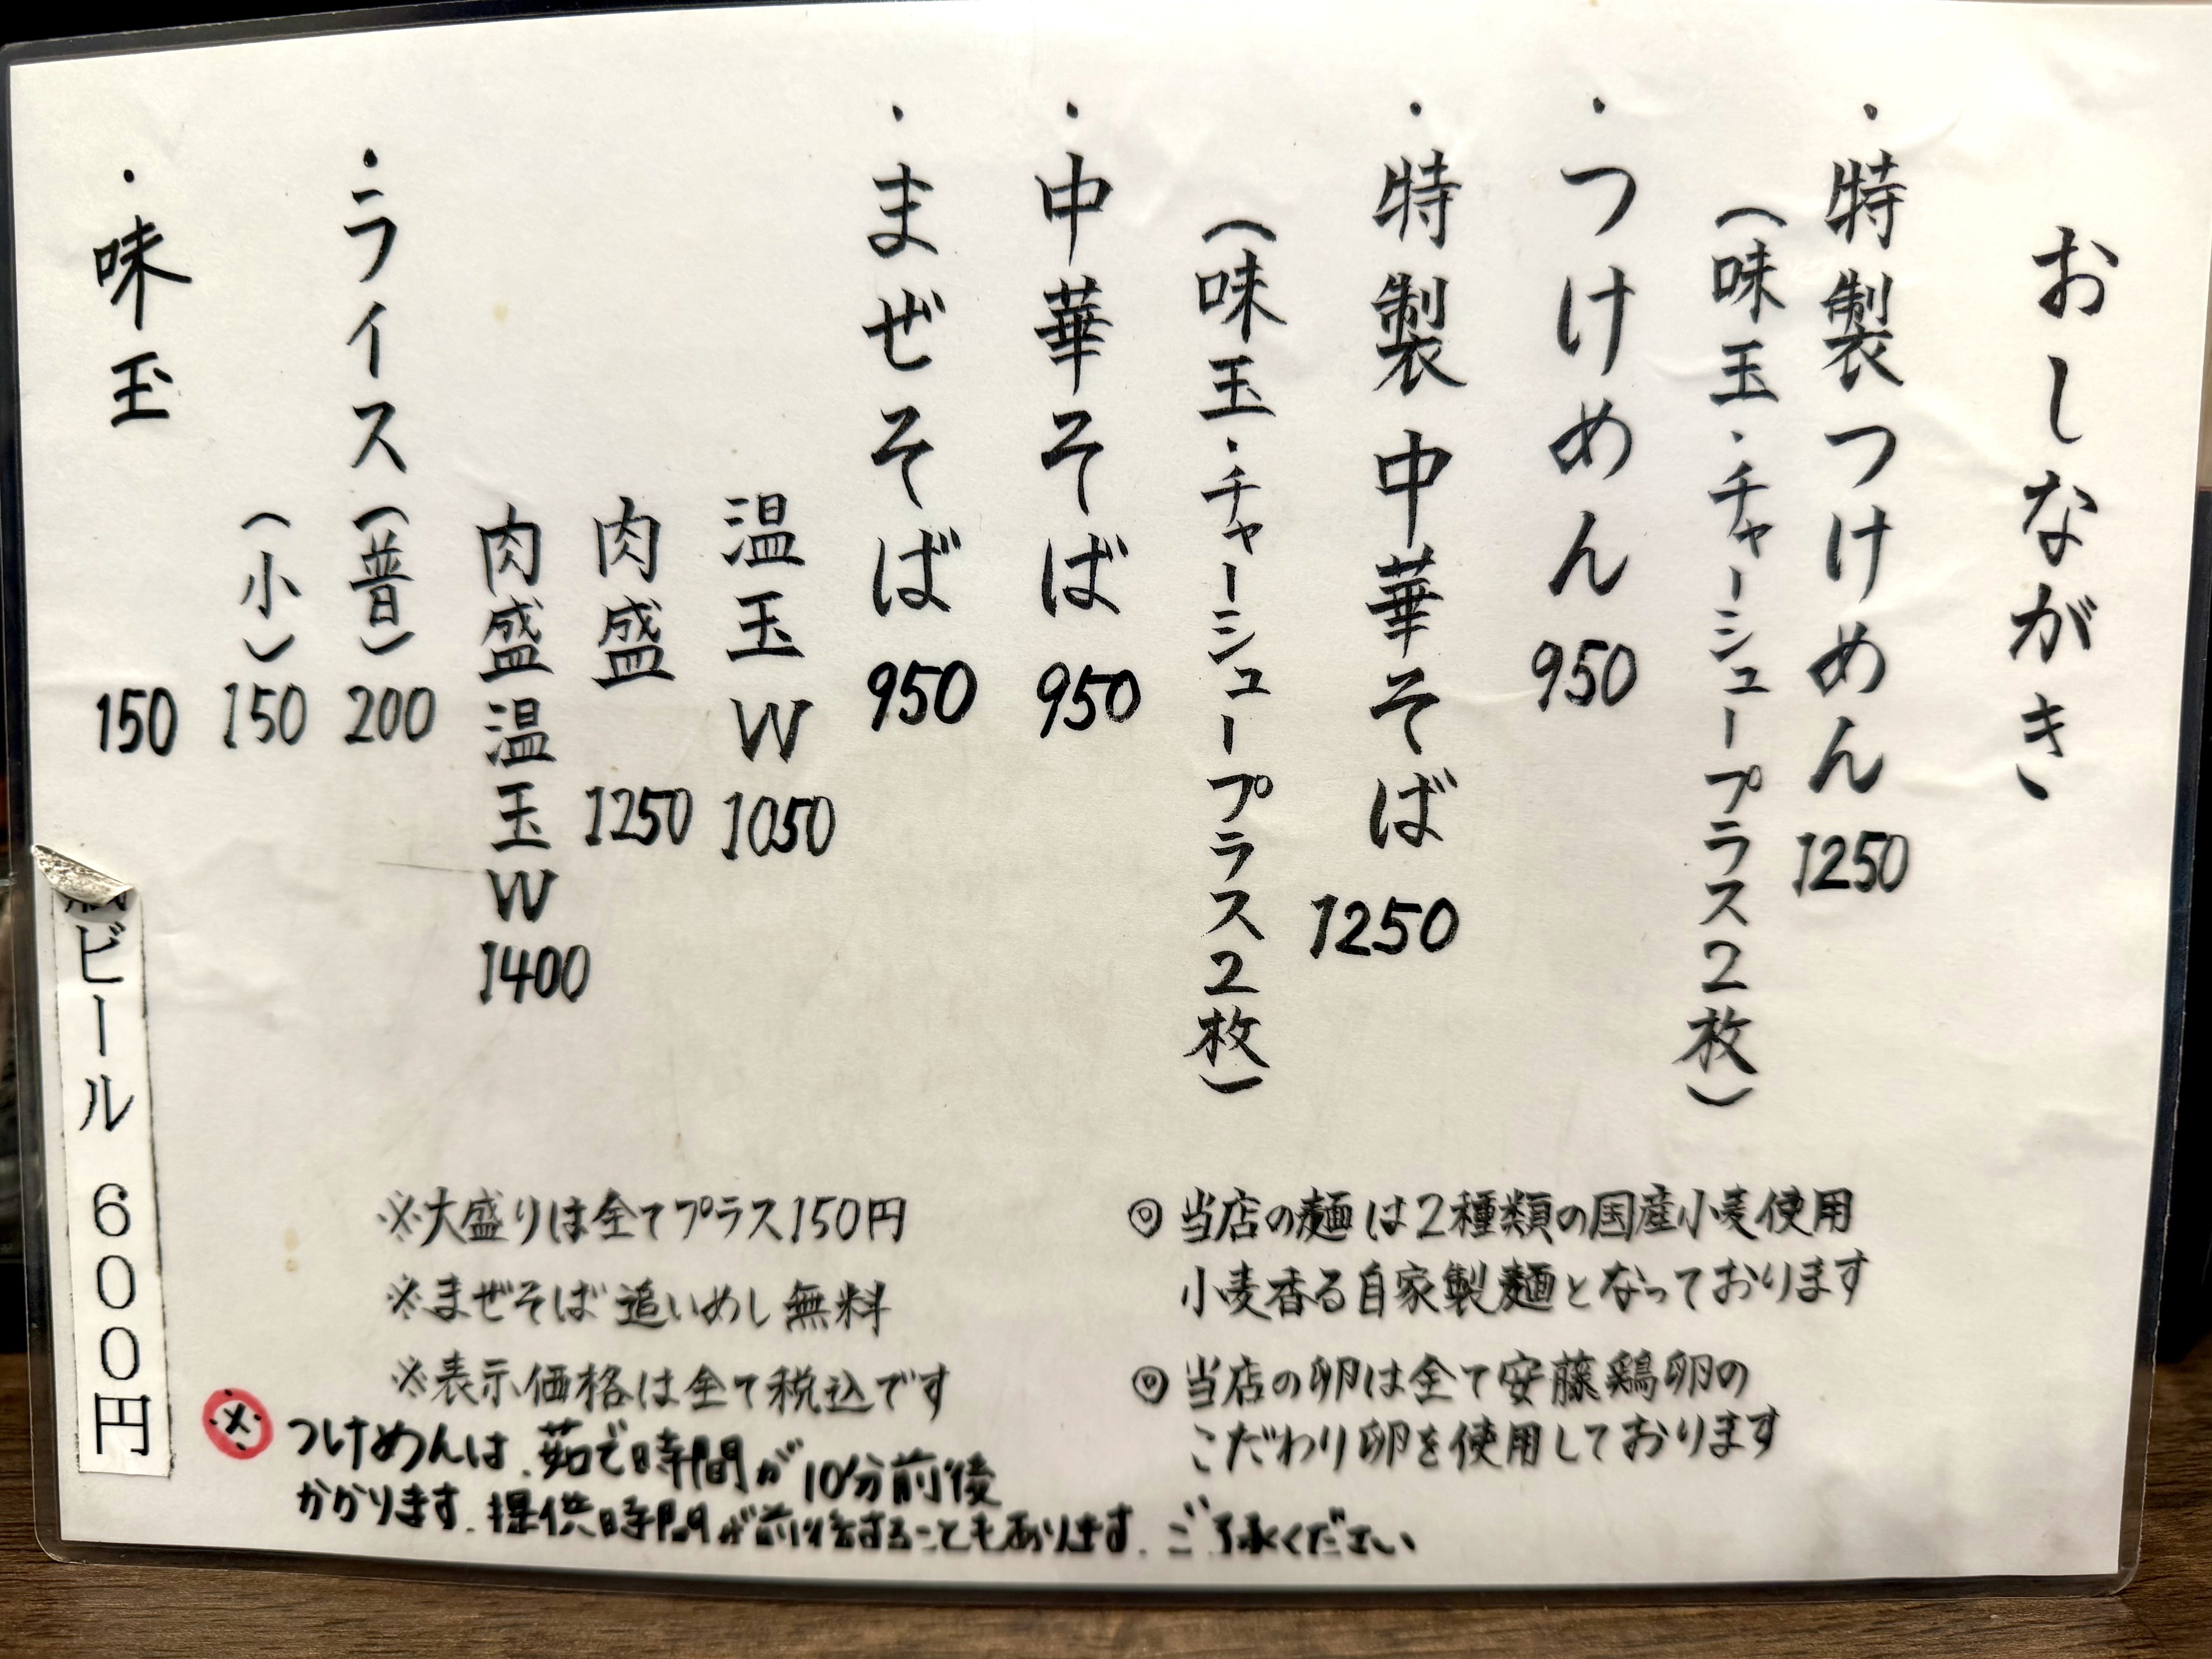 おしながき
・特製つけめん 1250
(味玉・チャーシュープラス2枚)
・つけめん 950
・特製中華そば 1250
(味玉・チャーシュープラス2枚)
・中華そば 950
・まぜそば 950
温玉W 1050
肉盛 1250
肉盛温玉W 1400
・ライス(普) 200
(小) 150
・味玉 150
ビール 600円
◎当店の麺は2種類の国産小麦使用
小麦香る自家製麺となっております
◎当店の卵は全て安藤鶏卵の
こだわり卵を使用しております
※大盛りは全てプラス150円
※まぜそば追いめし無料
※表示価格は全て税込です
※つけめんは、茹で時間が10分前後
かかります。提供時間が前後することもあります。ご了承ください